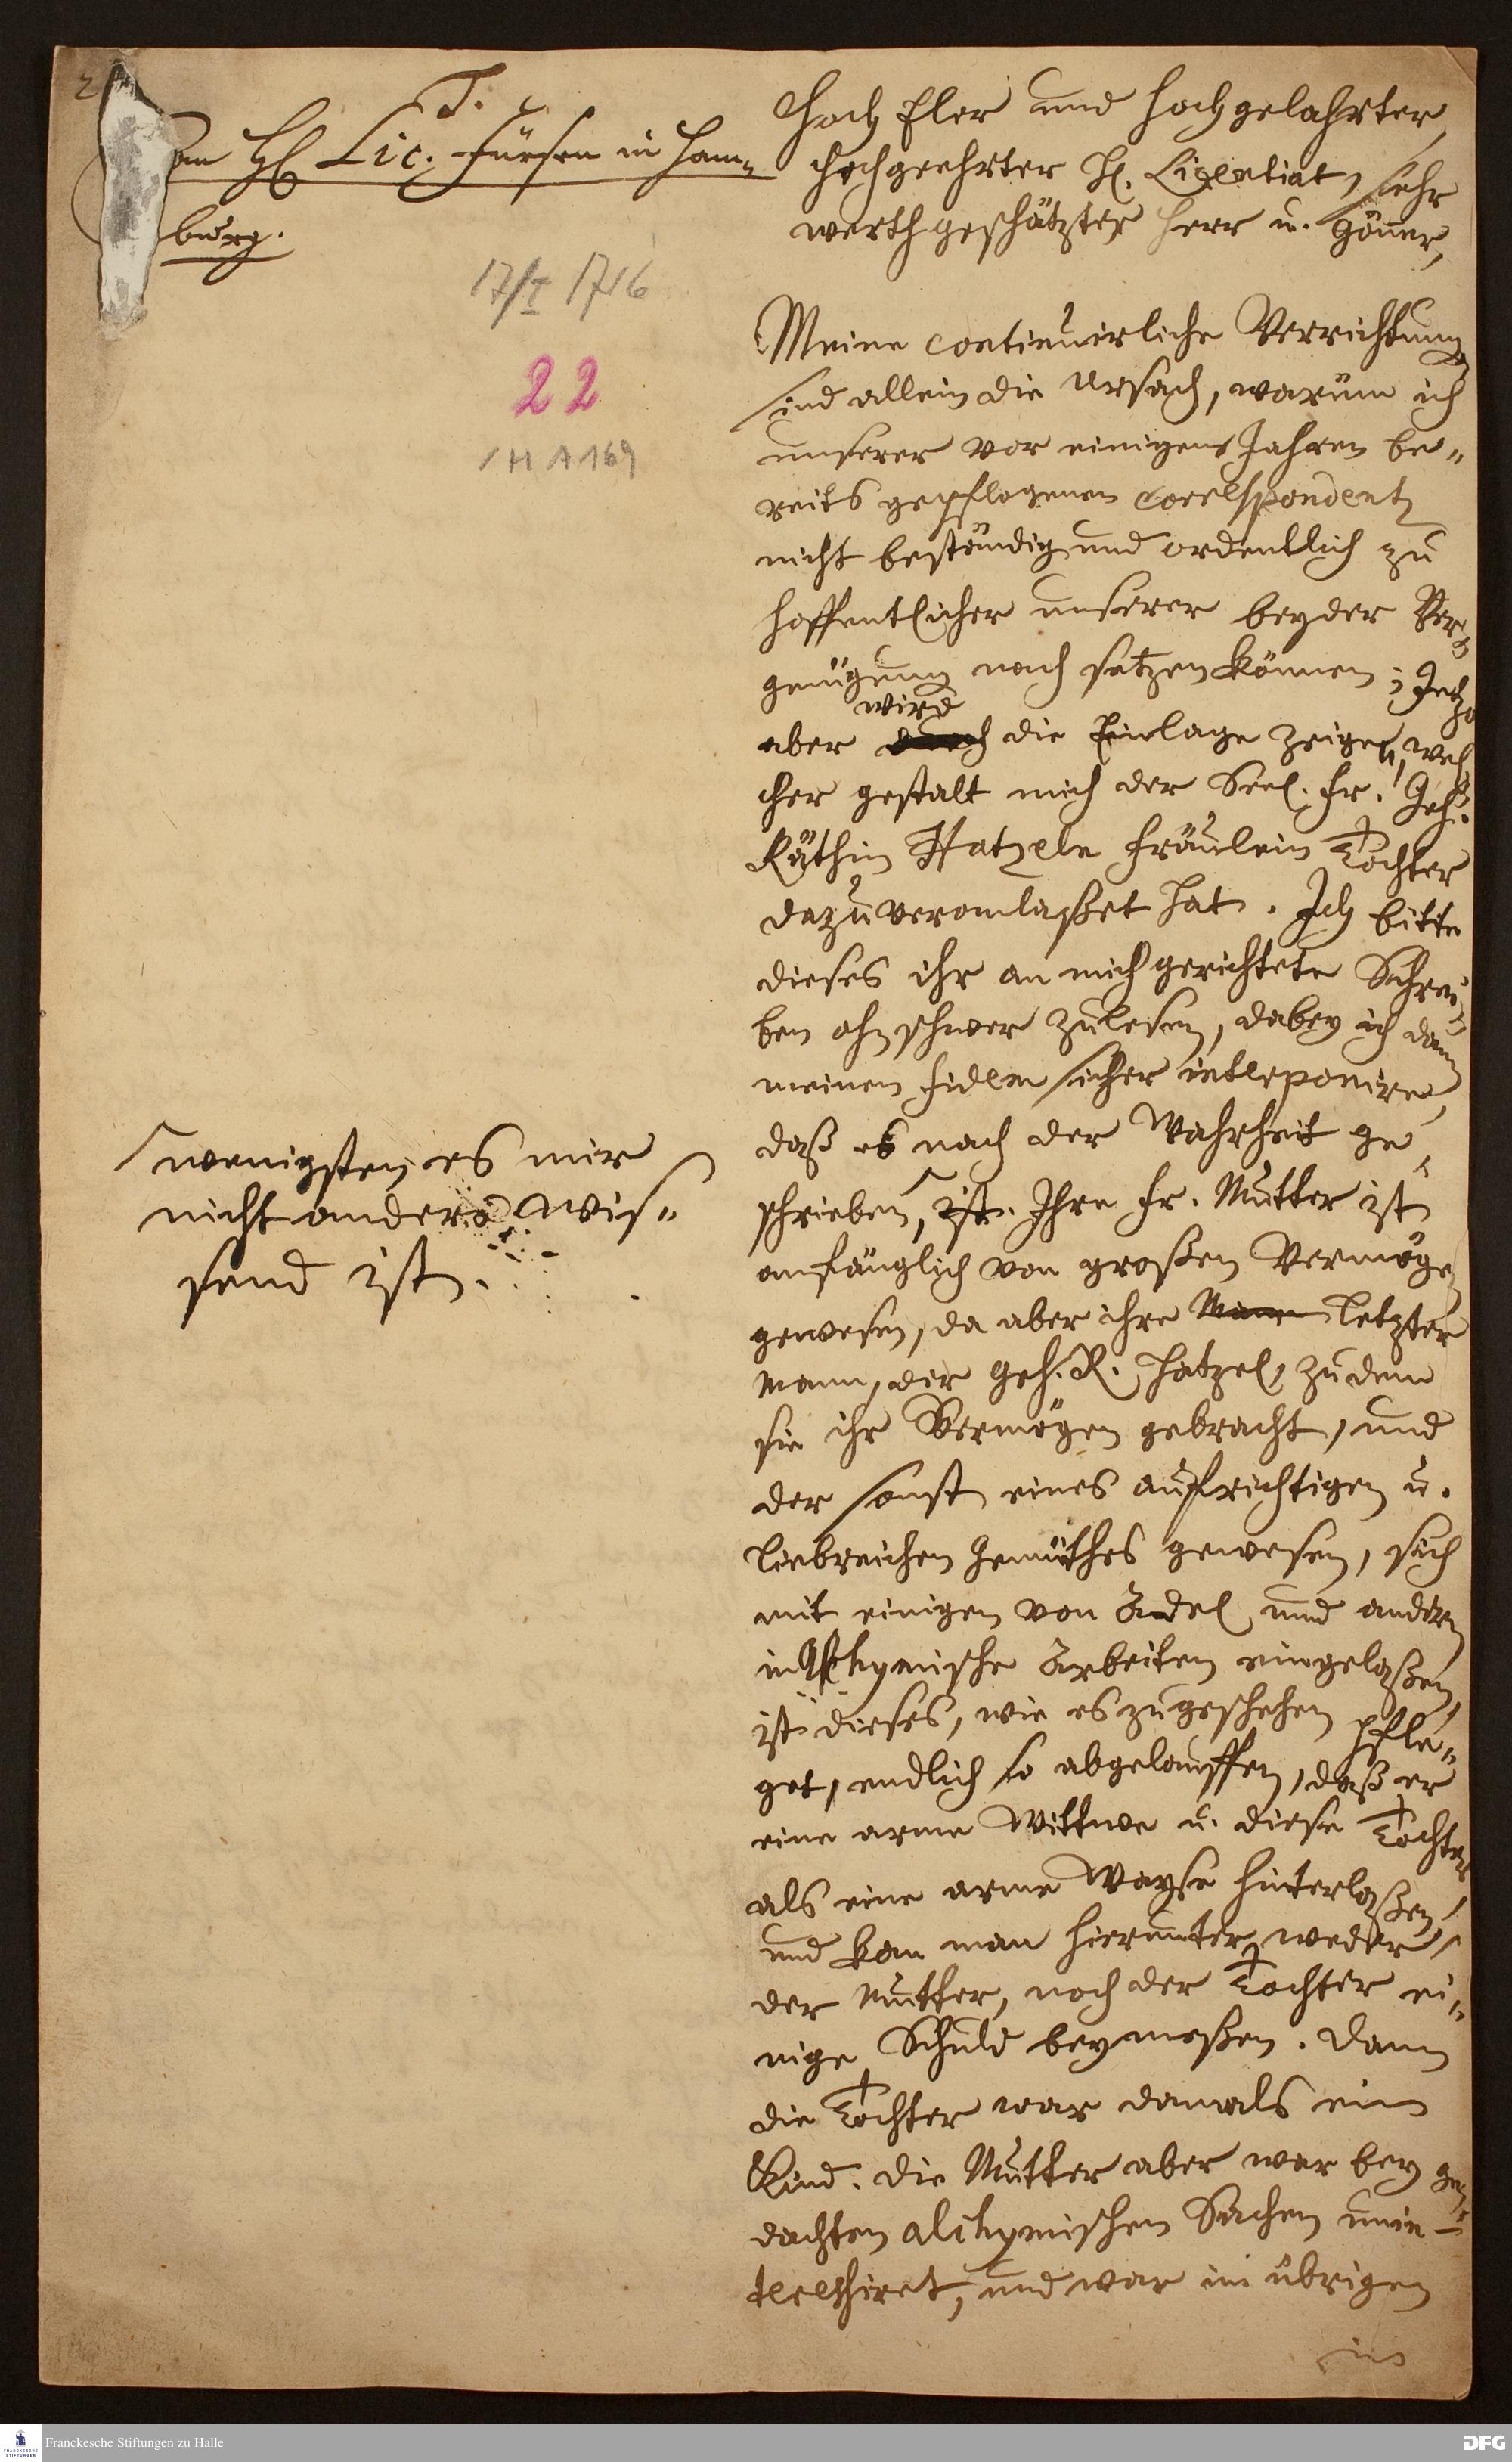 2
T.
an H. Lic. Fürsen in Ham-
burg.
17/I 1716
22
/ H A 169
Hoch Edler und Hochgelahrter,
Hochgeehrter H. Licentiat, sehr
werthgeschätzter Herr u. Gönner,
Meine continuirliche Verrichtung
sind allein die Ursach, warum ich
unserer vor einigen Jahren be-
reits gepflogenen Correspondentz
nicht beständig und ordentlich zu
hoffentlicher unserer beyder Ver-
gnügung nach setzen können; Jetzo
wird
aber durch die Einlage zeigen, wel-
cher gestalt mich der Seel. Fr. Geh.
Räthin Hatzeln Fräulein Tochter
dazu veranlaßet hat. Ich bitte
dieses ihr an mich gerichtete Schrei-
ben ohnschwer zulesen, dabey ich dann
meinen fidem sicher interponire,
daß es nach der Wahrheit ge-
schrieben, ist. Ihre Fr. Mutter ist
wenigsten es mir
nicht anders wis-
send ist.
anfänglich von großen Vermögen
gewesen, da aber ihre Mann letzter
Mann, der Geh. R. Hatzel, zu dem
sie ihr Vermögen gebracht, und
der sonst eines aufrichtigen u.
liebreichen Gemüthes gewesen, sich
mit einigen von Adel und andern
in Alchymische Arbeiten eingelaßen,
ist dieses, wie es zugeschehen pfle-
get, endlich so abgelauffen, daß er
eine arme Wittwe u. diese Tochter
als eine arme Wayse hinterlaßen,
und kan man hierunter weder
der Mutter, noch der Tochter ei-
nige Schuld beymeßen. Dann
die Tochter war damals ein
Kind. Die Mutter aber war bey ge-
dachten alchymischen Sachen unin-
teressiret, und war im übrigen
ins
Franckesche Stiftungen zu Halle
DFG